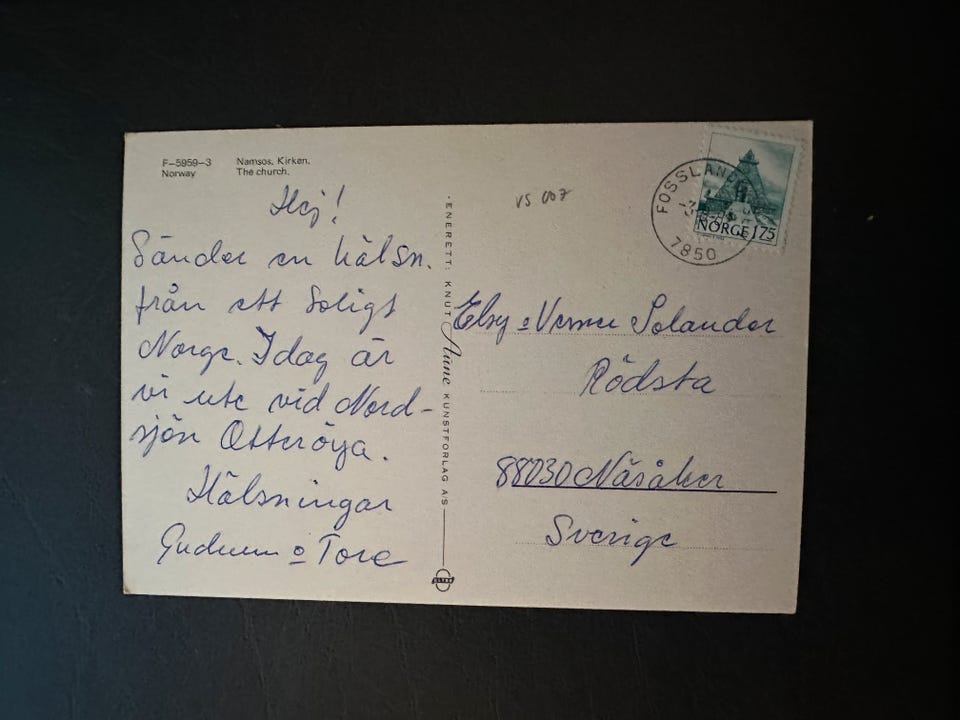 F-5959-3 Namsos. Kirken.
Norway The church.
Hej!
Sänder en hälsn.
från ett soligt
Norge. Idag är
vi ute vid Nord-
sjön Otteröya.
Hälsningar
Gudrun o Tore
· ENERETT: KNUT Aune KUNSTFORLAG A/S
VS 007
FOSSLAND
7850
NORGE 175
Elsy o Verner Solander
Rödsta
88030 Näsåker
Sverige